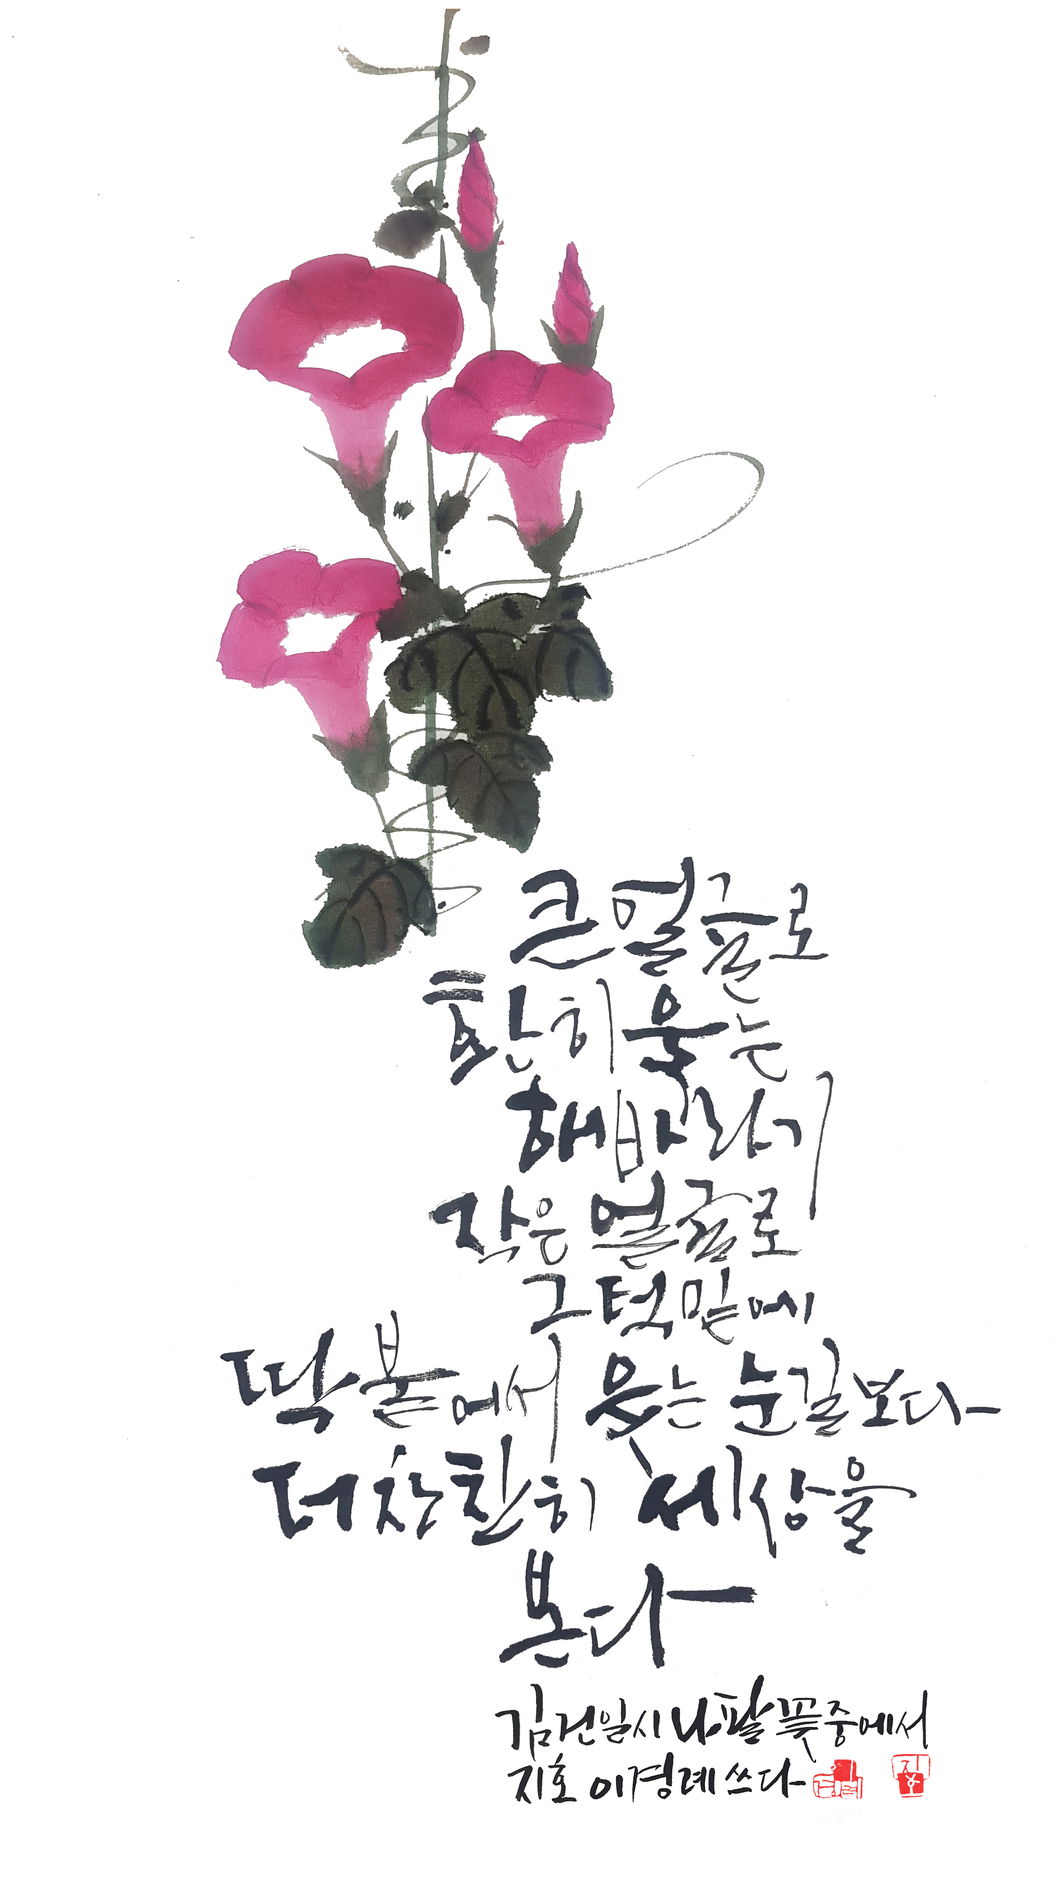 큰 얼굴로
환히 웃는
해바라기
작은 얼굴로
그 턱밑에
딱 붙에서 웃는 눈길보다
더 찬찬히 세상을
본다
김건일 시 나팔꽃 중에서
지호 이경례 쓰다
지호